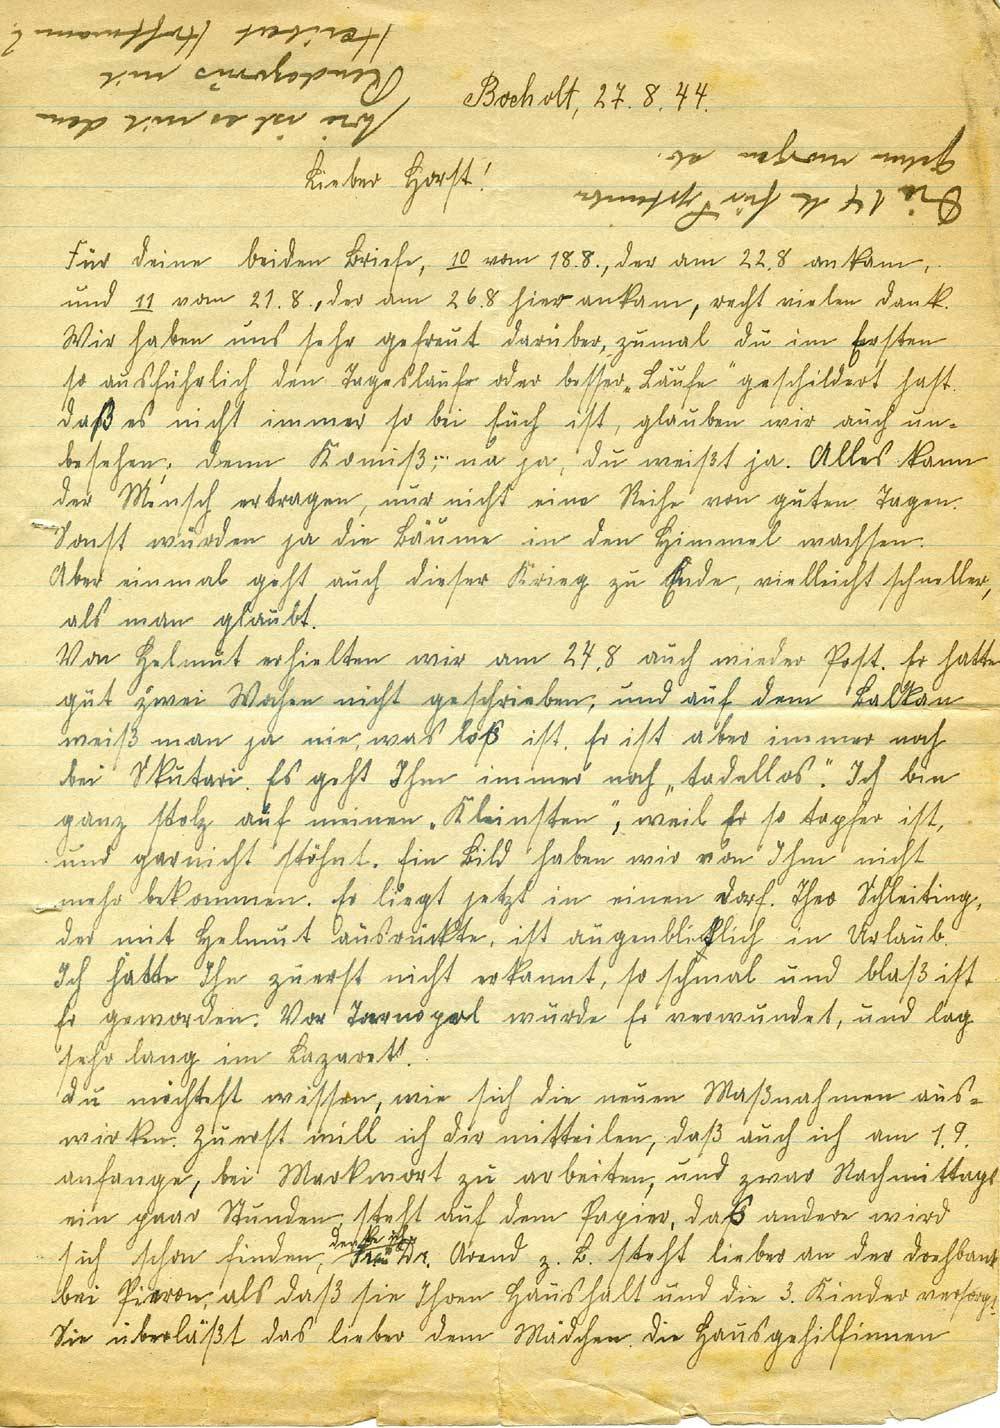 Wie ist es mit dem
Rendezvous mit
Heribert Hoffmann?
Bocholt, 27. 8. 44.
Die 14 M für September
gehen morgen ab.
Lieber Horst!
Für deine beiden Briefe, 10 vom 18.8., der am 22.8 ankam,
und 11 vom 21.8., der am 26.8 hier ankam, recht vielen Dank.
Wir haben uns sehr gefreut darüber, zumal du im Ersten
so ausführlich den Tageslauf oder besser „Läufe" geschildert hast.
daß es nicht immer so bei Euch ist, glauben wir auch un-
besehen, denn Komiß, na ja, du weißt ja. Alles kann
der Mensch ertragen, nur nicht eine Reihe von guten Tagen.
Sonst würden ja die Bäume in den Himmel wachsen.
Aber einmal geht auch dieser Krieg zu Ende, vielleicht schneller,
als man glaubt.
Von Helmut erhielten wir am 24.8 auch wieder Post. Er hatte
gut zwei Wochen nicht geschrieben, und auf dem Balkan
weiß man ja nie, was loß ist. Er ist aber immer noch
bei Skutari. Es geht Ihm immer noch „tadellos". Ich bin
ganz stolz auf meinen „Kleinsten", weil Er so tapfer ist,
und garnicht stöhnt. Ein Bild haben wir von Ihm nicht
mehr bekommen. Er liegt jetzt in einen Dorf. Theo Schleiting,
der mit Helmut ausrückte, ist augenblicklich in Urlaub.
Ich hätte Ihn zuerst nicht erkannt, so schmal und blaß ist
Er geworden. Vor Tarnopol wurde Er verwundet, und lag
sehr lang im Lazarett.
du möchtest wissen, wie sich die neuen Maßnahmen aus-
wirken. Zuerst will ich dir mitteilen, daß auch ich am 1.9.
anfange, bei Markwort zu arbeiten, und zwar Nachmittags
ein paar Stunden steht auf dem Papier, daß andere wird
sich schon finden, Frau Dr. Arend z. B. steht lieber an der Drehbank
bei Pieron, als daß sie Ihren Haushalt und die 3. Kinder versorgt.
Sie überläßt das lieber dem Mädchen. die Hausgehilfinnen